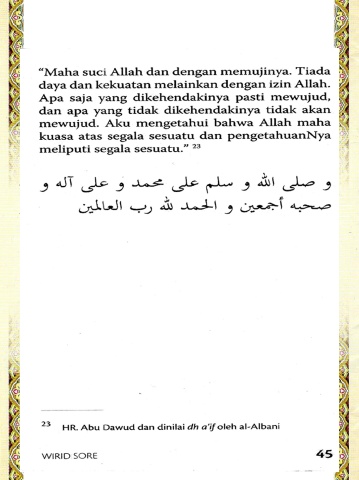 “Maha suci Allah dan dengan memujinya. Tiada
daya dan kekuatan melainkan dengan izin Allah.
Apa saja yang dikehendakinya pasti mewujud,
dan apa yang tidak dikehendakinya tidak akan
mewujud. Aku mengetahui bahwa Allah maha
kuasa atas segala sesuatu dan pengetahuanNya
meliputi segala sesuatu.” 23
و صلى الله و سلم على محمد و على آله و
صحبه أجمعين و الحمد لله رب العالمين
23 HR. Abu Dawud dan dinilai dh a'if oleh al-Albani
WIRID SORE 45